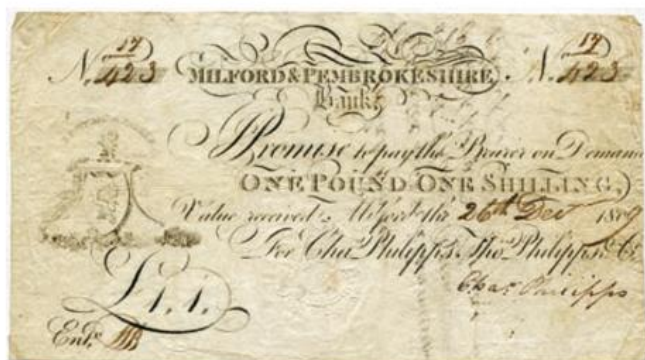 N. 17/423 N. 17/423
MILFORD & PEMBROKESHIRE
Bank.
Promise to pay the Bearer on Demand
ONE POUND ONE SHILLING,
Value received, Milford the 26th Decr 1809
For Chas. Philipps, Tho. Philipps & Co.
Chas. Philipps
£1.1.
Entd.